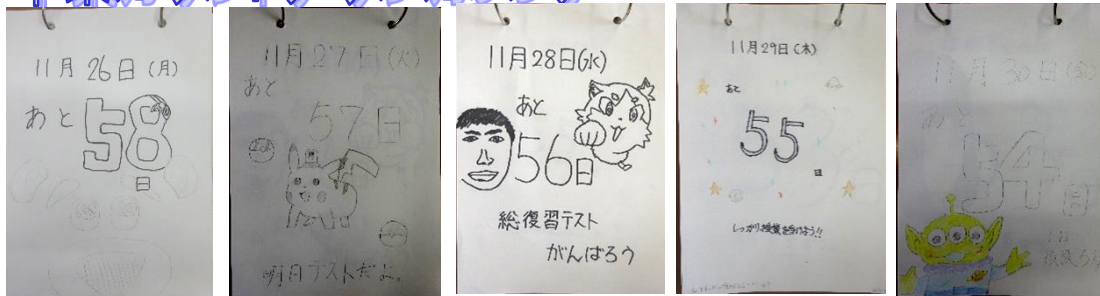 11月26日(月)
あと58
日
11月27日(火)
あと
57日
明日テストだよ。
11月28日(水)
あと
56日
総復習テスト
がんばろう
11月29日(木)
あと
55
日
しっかり授業を受けよう!!
11月30日(金)
あと
54日